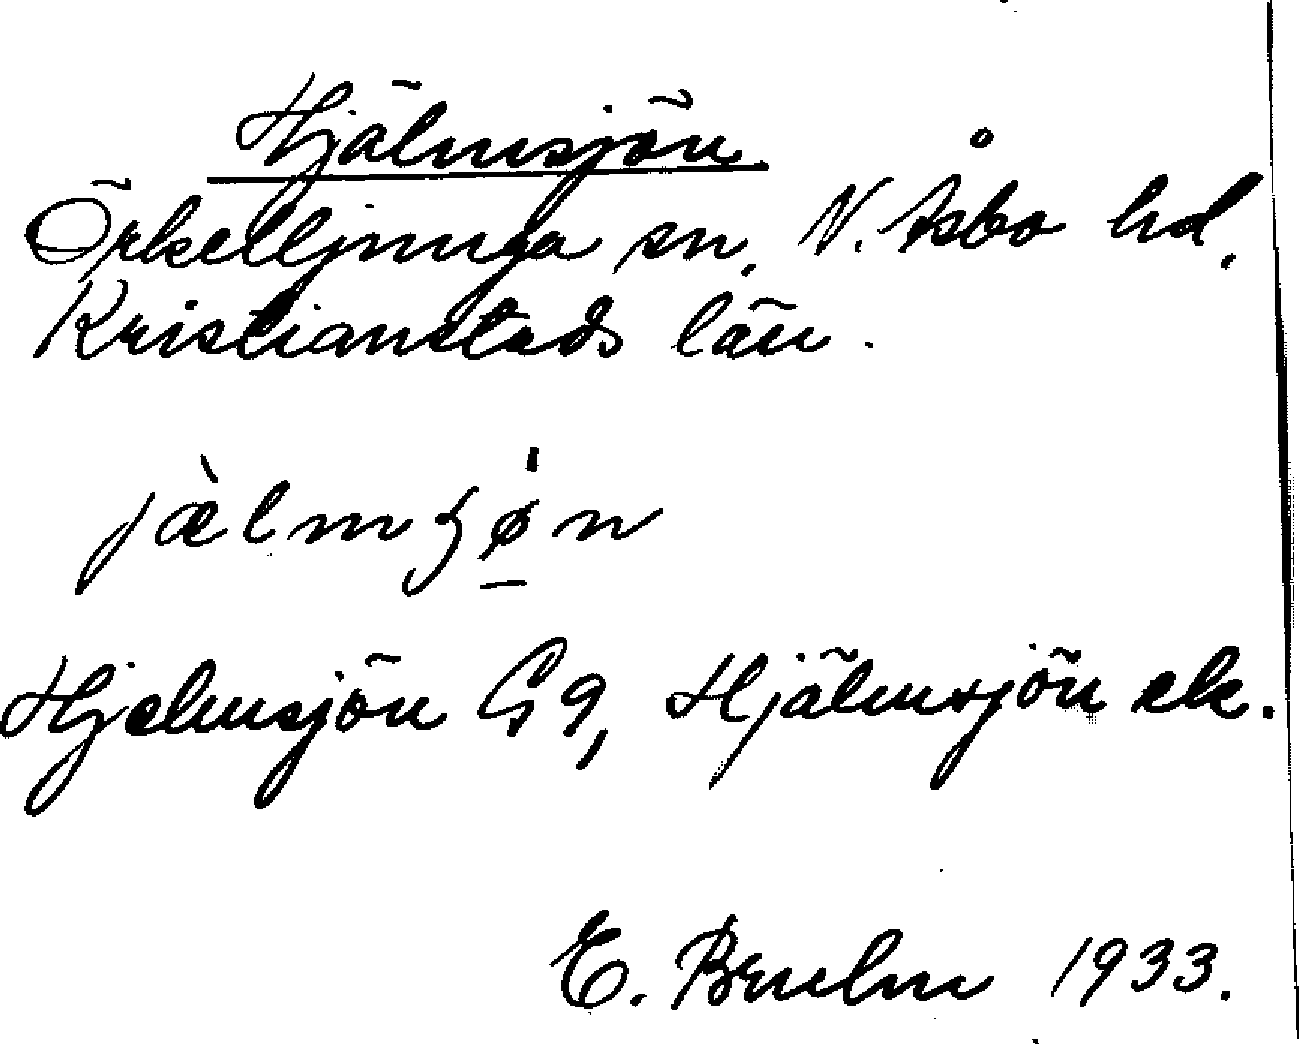 Hjälmsjön
Örkelljunga sn. N. Åsbo hd.
Kristianstads län.
jæ̀lmʒø̍n
Hjelmsjön G9, Hjälmsjön ek.
E. Bruhn 1933.